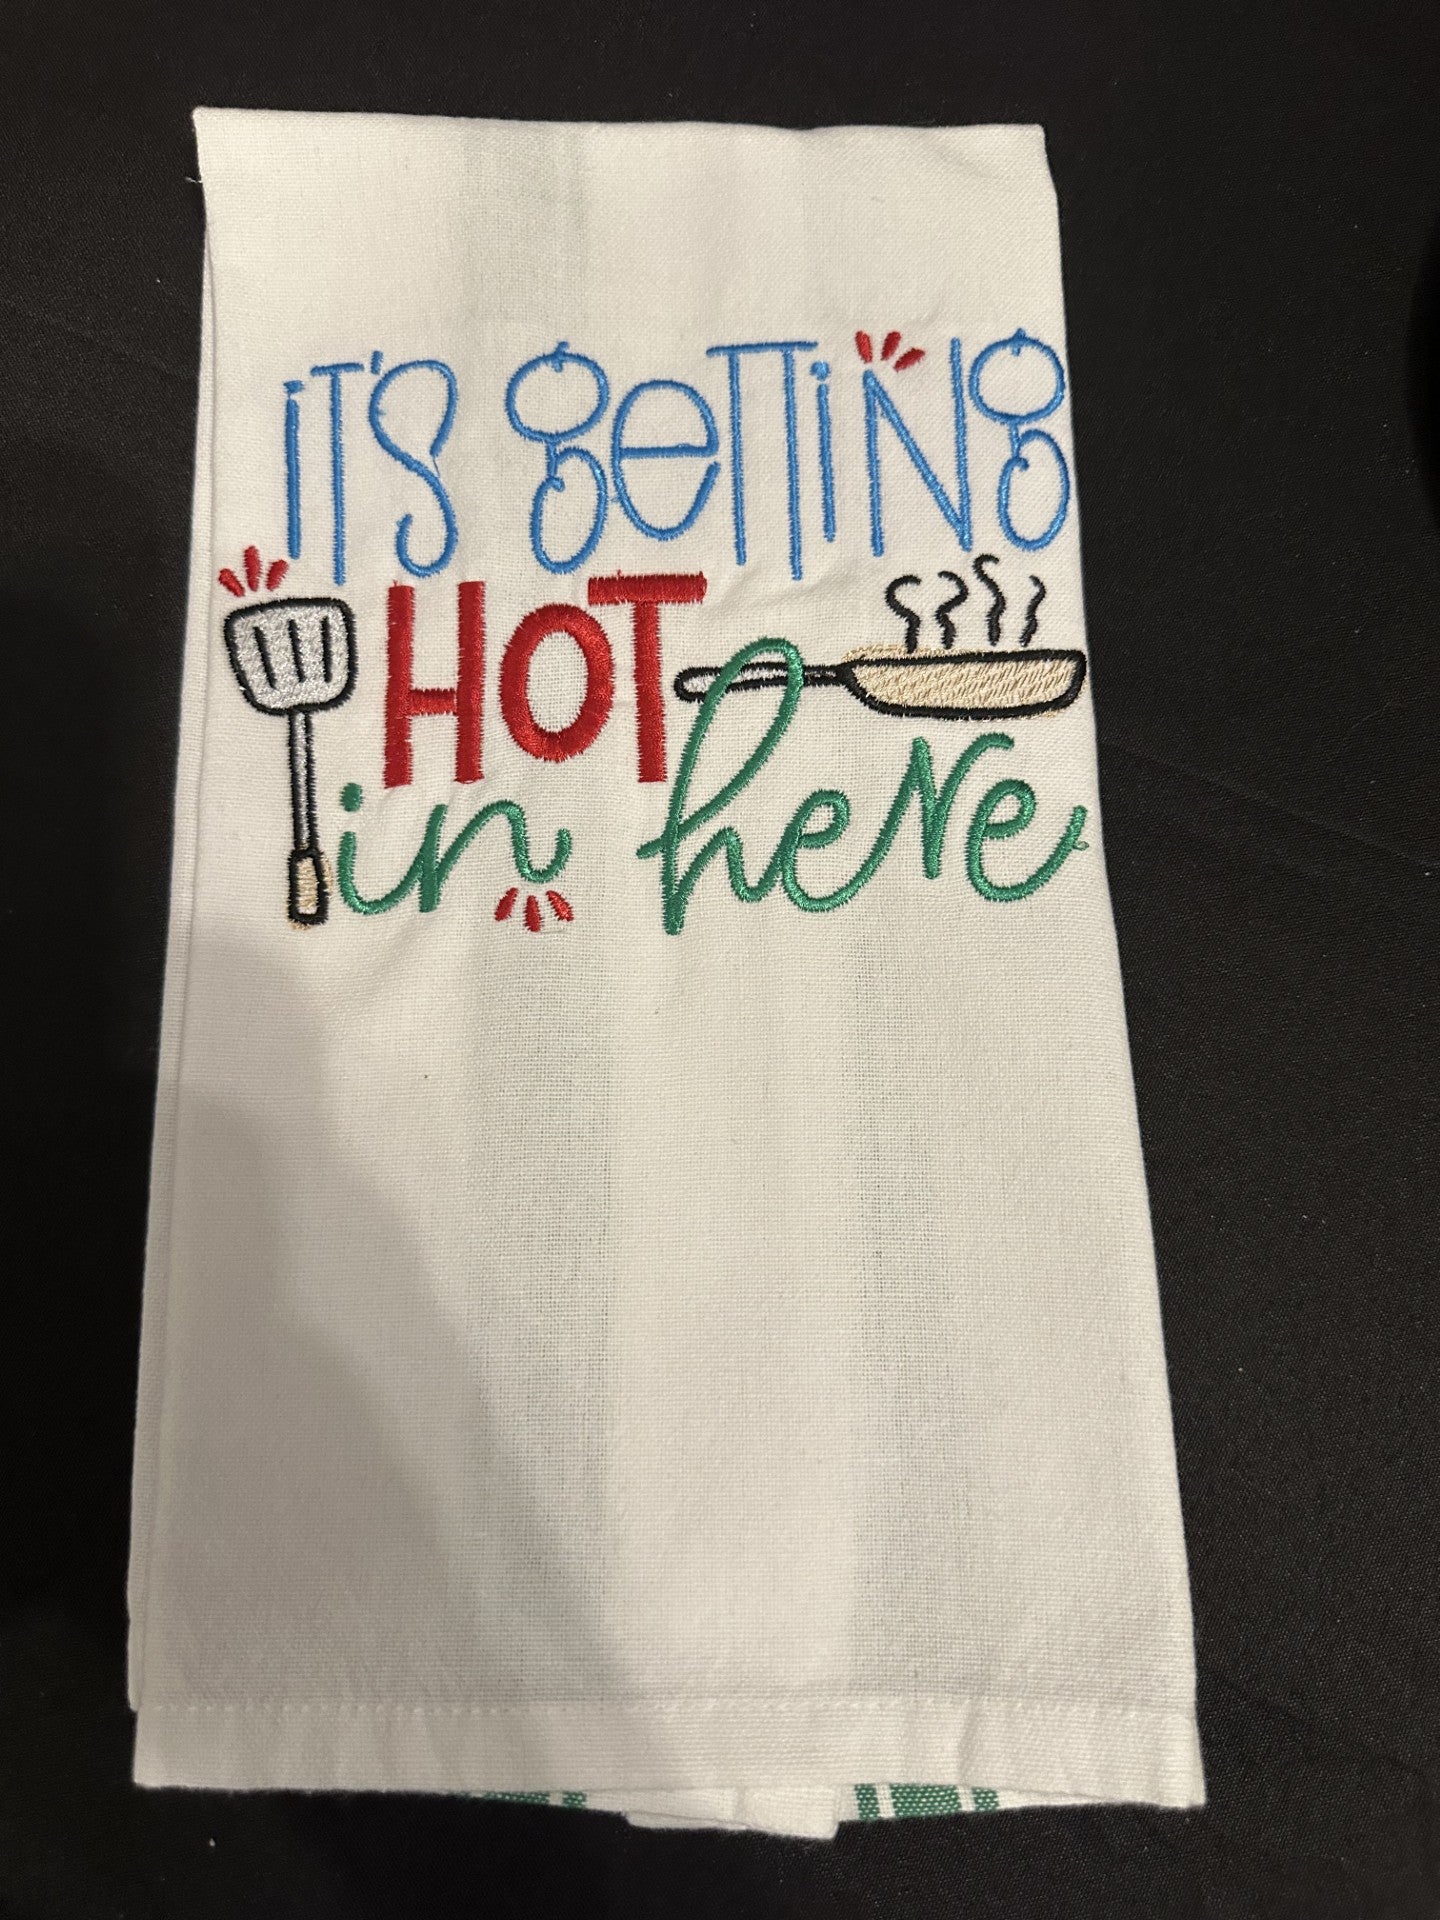 iT'S geTTiNg
HOT
in here